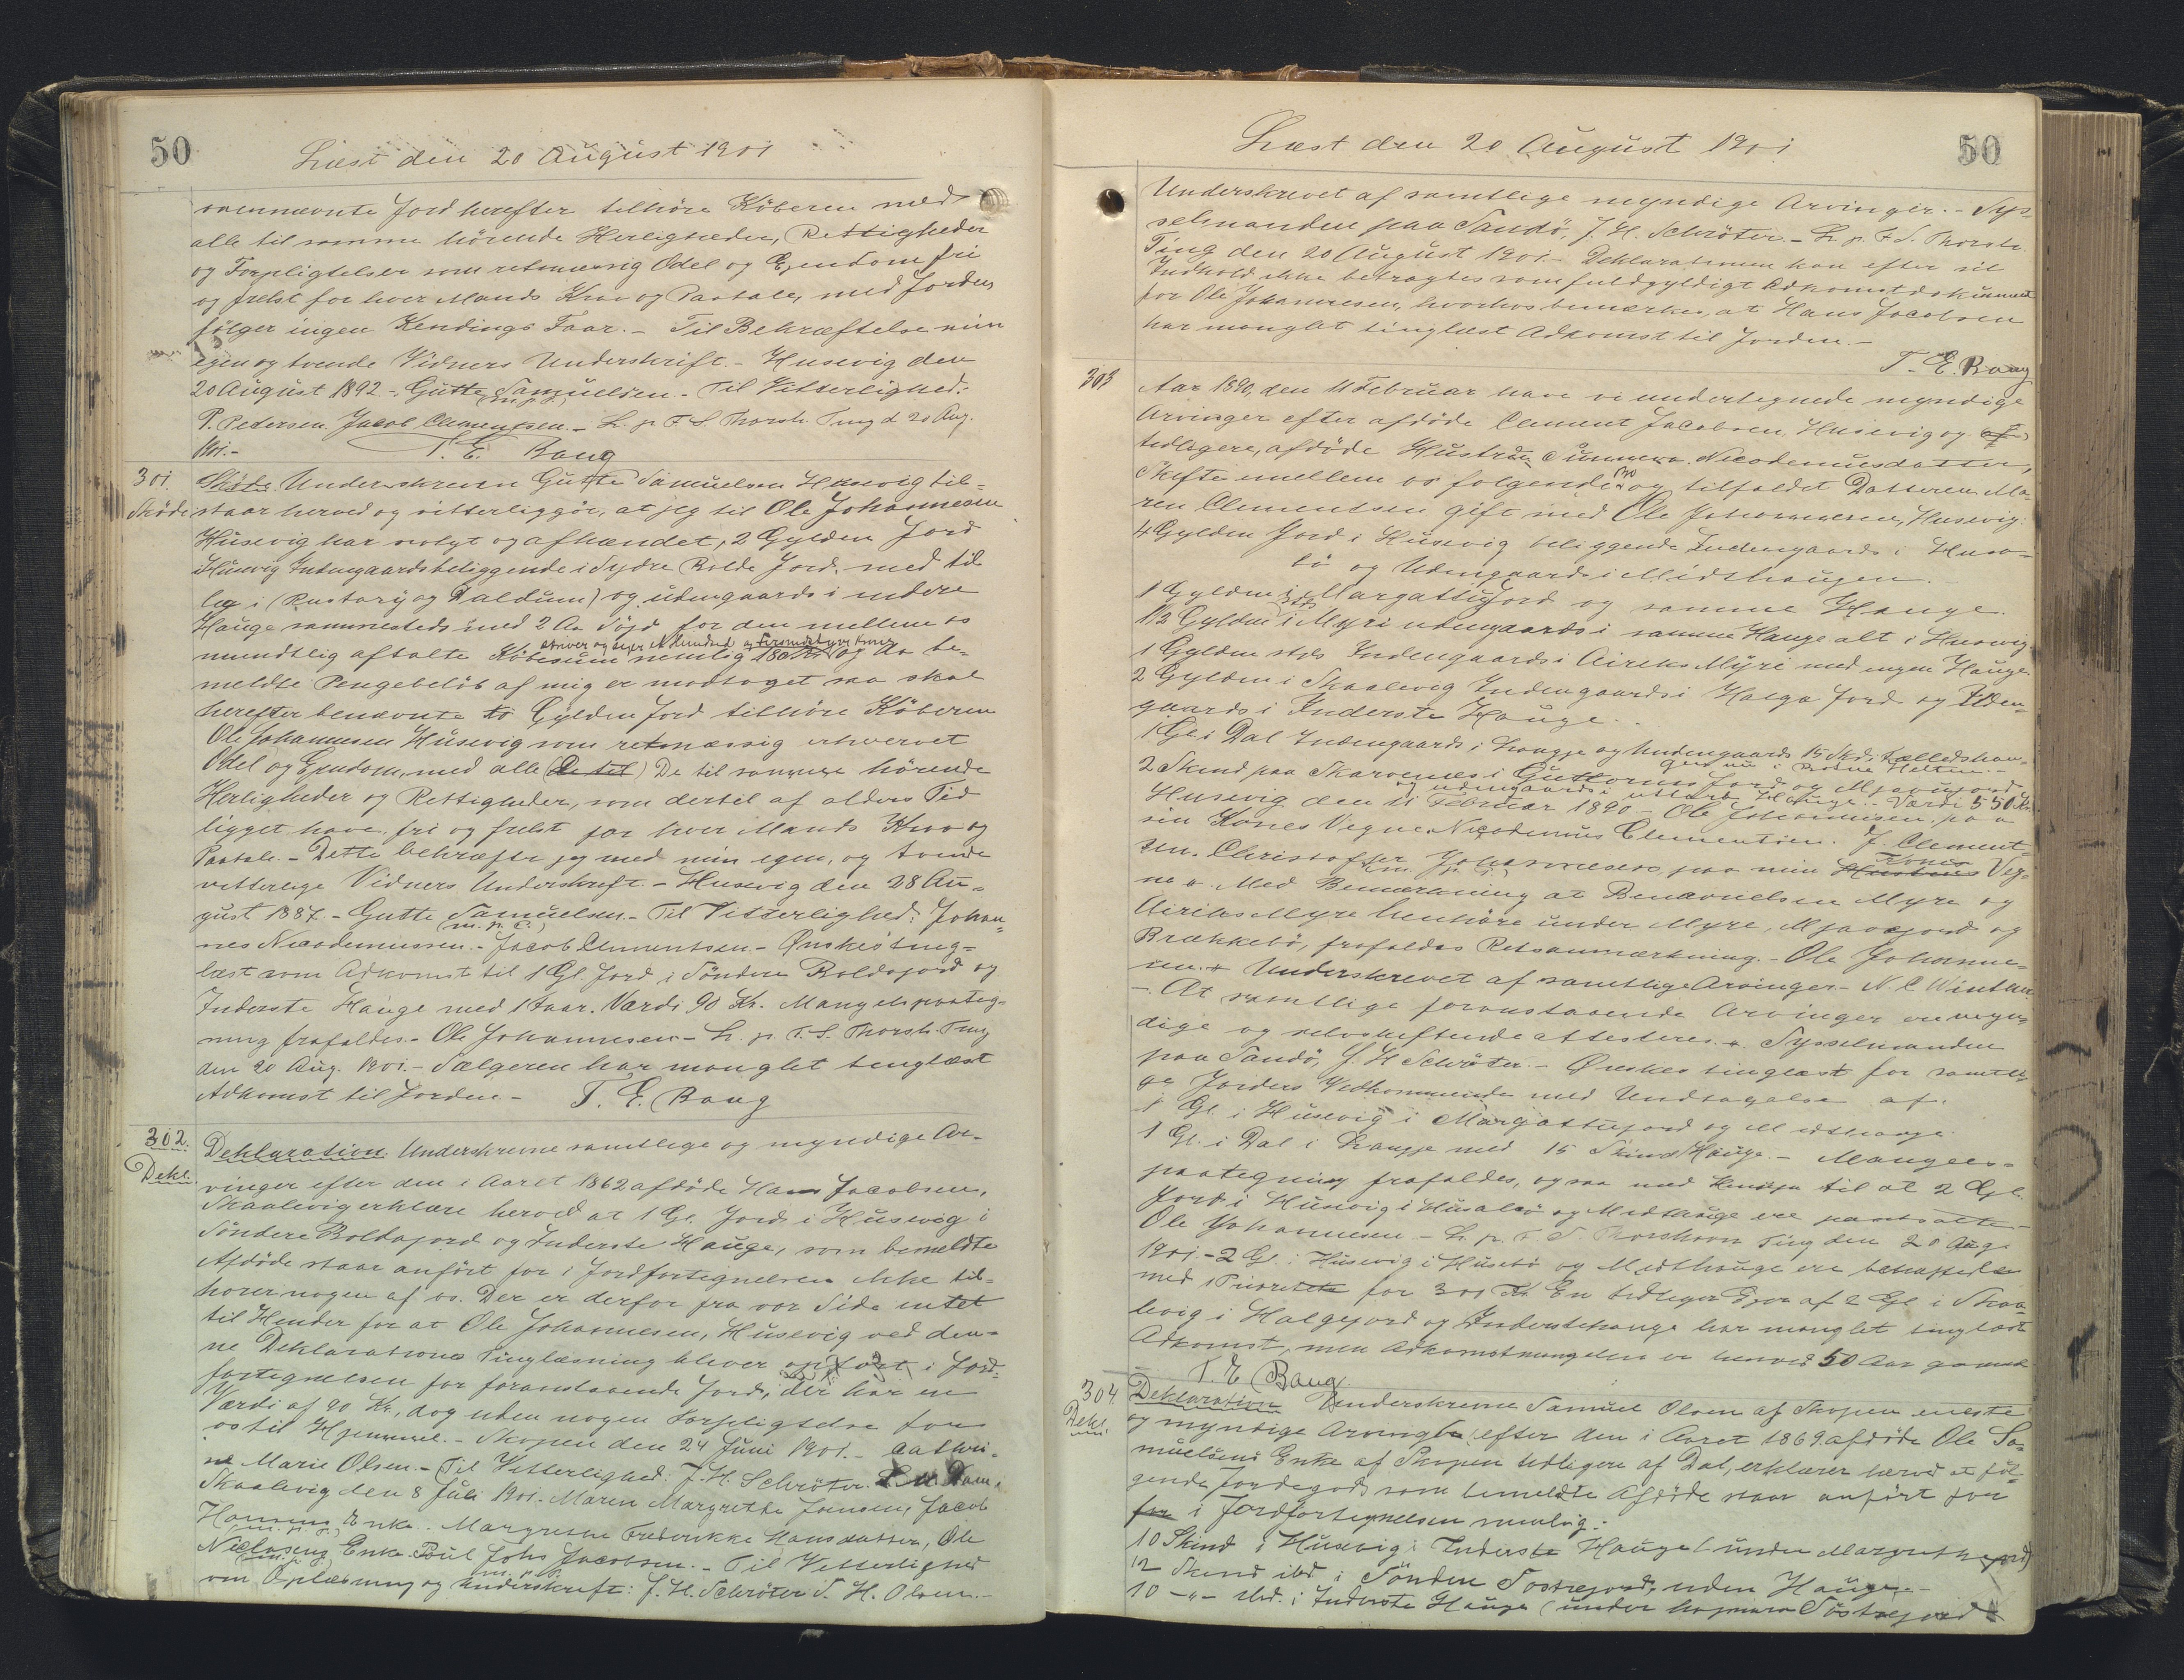 50
Læst den 20 August 1901
ovennævnte Jord herefter tilhöre Köberen med
alle til samme hörende Herligheder, Rettigheder
og Forpligtelser som retmæssig Odel og Ejendom fri
og frelst for hver Mands Krav og Paatale, med Jorden
fölger ingen Kendings Faar. - Til Bekræftelse min
egen og tvende Vidners Underskrift. - Husevig den
20 August 1892 - Gutte Samuelsen. - Til Vitterlighed:
(m. p. P.)
P. Pedersen. Jacob Clementsen. - L. p. F. S. Thorsh. Ting d 20 Aug.
1901. - T. E. Bang
301.
Skøde
Skøde Underskrevne Gutte Samuelsen Husevig til-
staar herved og vitterliggör, at jeg til Ole Johannesen
Husevig har solgt og afhændet, 2 Gylden Jord
i Husevig Indengaards beliggende i Sydre Bolde Jord, med til
læg i (Rustary og Daldum) og udengaards i indere
Hauge sammesteds med 2 Aa Töjd for den mellem os
mundtlig aftalte Köbesum nemlig 180 Kr, og da be-
skriver og siger et Hundred og Firsindstyve Kroner
meldte Pengebelöb af mig er modtaget saa skal
herefter benævnte to Gylden Jord tilhöre Köberen
Ole Johannesen Husevig som retmæssig erhvervet
Odel og Ejendom, med alle (De til) De til samme hörende
Herligheder og Rettigheder, som dertil af alders Tid
ligget have, fri og frelst for hver Mands Krav og
Paatale. - Dette bekræfter jeg med min egen, og tvende
vitterlige Vidners Underskrift. - Husevig den 28 Au-
gust 1887. - Gutte Samuelsen. - Til Vitterlighed: Johan-
(m. p. P.)
nes Nicodemussen. - Jacob Clementsen. - Ønskes ting-
læst som Adkomst til 1 Gl. Jord i Söndere Boldejord og
Inderste Hauge med 1 Faar. Værdi 90 Kr. Mangelspaateg-
ning frafaldes. - Ole Johannesen. - L. p. F. S. Thorsh. Ting
den 20 Aug. 1901. - Sælgeren har manglet tinglæst
Adkomst til Jorden - T. E. Bang
302.
Dekl.
Deklaration. Underskrevne samtlige og myndige Ar-
vinger efter den i Aaret 1862 afdöde Hans Jacobsen,
Skaalevig erklære herved at 1 Gl. Jord i Husevig i
Söndere Boldajord og Inderste Hauge, som bemeldte
Afdöde staar anfört for i Jordfortegnelsen ikke til-
hører nogen af os. Der er derfor fra vor Side intet
til Hinder for at Ole Johannesen, Husevig ved den-
ne Deklarations Tinglæsning bliver opfört i Jord-
fortegnelsen for foranstaaende Jord, der har en
Værdi af 90 Kr, dog uden nogen Forpligtelse for
os til Hjemmel. - Skopen den 24 Juni 1901. - Cathri-
ne Marie Olsen. - Til Vitterlighed: J. H. Schröter.
Skaalevig den 8 Juli 1901. Maren Margrethe Joensen, Jacob
Hansens Enke. Margrethe Frederikke Hansdatter, Ole
(m. p. P.)
Niclasens Enke. Poul Johs Jacobsen. - Til Vitterlighed
(m. p. P.)
om Oplæsning og Underskrift: J. H. Schröter S. H. Olsen. -
50
Læst den 20 August 1901
Underskrevet af samtlige myndige Arvinger. - Sys-
selmanden paa Sandö, J. H. Schröter. - L. p. F. S. Thorsh.
Ting den 20 August 1901. - Deklarationen kan efter sit
Indhold ikke betragtes som fuldgyldigt Adkomstdokument
for Ole Johannesen, hvorhos bemærkes, at Hans Jacobsen
har manglet tinglæst Adkomst til Jorden. -
T. E. Bang
303
Aar 1890, den 11 Februar have vi undertegnede myndige
Arvinger efter afdöde Clement Jacobsen Husevig og (af)
tidligere, afdöde Hustru Sunneva Nicodemusdatter,
Skifte mellem os følgende og tilfaldet Datteren Ma-
ren Clementsen gift med Ole Johannesen, Husevig:
4 Gylden Jord i Husevig beliggende Indengaards i Huse-
bö og Udengaards i Midthaugen.
1 Gylden i Margattujord og samme Hauge.
1½ Gylden i Myri udengaards i samme Hauge alt i Husevig.
1 Gylden stds Indengaards i Airiks Myre med ingen Hauge
2 Gylden i Skaalevig Indengaards i Halga Jord og Uden-
gaards i Inderste Hauge. .
1 Gl. i Dal Indengaards i Laugje og Undengaards 15 Skd. i Fælledshau-
2 Skind paa Skarvenes i Guttorms Jord og Mjavujord
og udengaards i ytterste Hauge. - Værdi 550 Kr.
Husevig den 11 Februar 1890 - Ole Johannesen, paa
sin Kones Vegne Nicodemus Clementsen. J. Clement-
sen. Christoffer Johannesen paa min Hustrus Veg-
Kones
(m. p. P.)
ne. Med Bemærkning at Benævnelsen Myre og
Airiks Myre henhöre under Myre, Mjavajord og
Brækkebö, frafaldes Retsanmærkning. - Ole Johanne-
sen. Underskrevet af samtlige Arvinger. - N. C. Winther
-. At samtlige foranstaaende Arvinger ere myn-
dige og selvskiftende attesteres. Sysselmanden
paa Sandö, J. H. Schröter. - Ønskes tinglæst for samtli-
ge Jorders Vedkommende med Undtagelse af:
1 Gl. i Husevig i Margattujord og Midthauge
1 Gl. i Dal i Laugje med 15 Skind Hauge. - Mangels-
paategning frafaldes, ogsaa med Hensyn til at 2 Gl.
Jord i Husevig i Husabö og Midthauge ere pantsatte -
Ole Johannesen - L. p. F. S. Thorshavn Ting den 20 Aug.
1901. - 2 Gl. i Husevig i Husebö og Midthauge ere behæftede
med 1 Prioritet for 300 Kr. En tidligere Ejer af 2 Gl. i Skaa-
levig i Halgejord og Inderstehauge har manglet tinglæst
Adkomst, men Adkomstmanglen er henved 50 Aar gammel
T. E. Bang.
304.
Dekl.
Deklaration Underskrevne Samuel Olsen af Skopen eneste
og myndige Arving efter den i Aaret 1869 afdöde Ole Sa-
muelsens Enke af Skopen tidligere af Dal, erklærer herved at föl-
gende Jordegods som bemeldte Afdöde staar anfört for
for i Jordfortegnelsen nemlig:
10 Skind i Husevig i Inderste Hauge (under Margrethejord)
12 Skind ibd i Söndre Sostrejord, uden Hauge -
10 -"- ibd. i Inderste Hauge (under Söstrejord